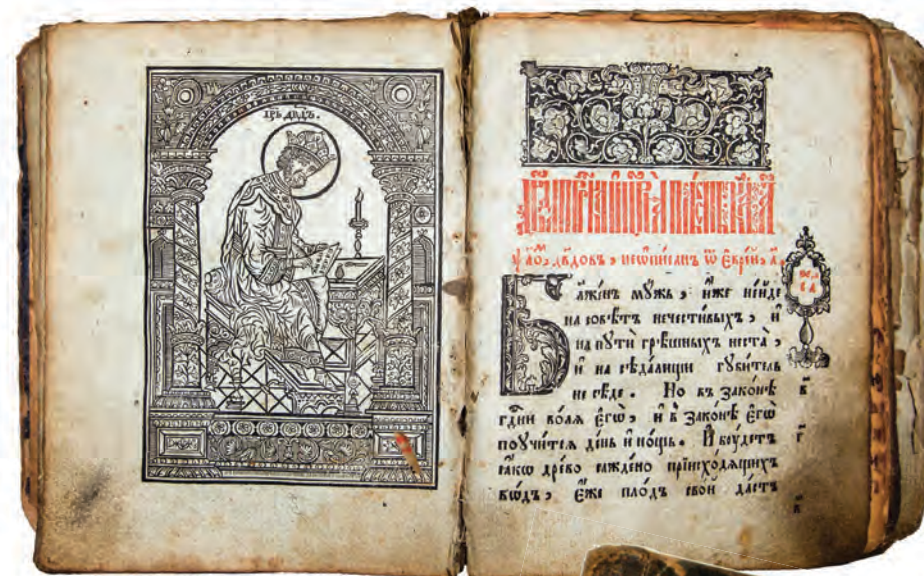 црь дв҃дъ.
ѱало́, дв҃довъ, неѡпи́санъ ѿ є҆врє́й, а҃.
Бл҃же́нъ мꙋ́жь, и҆́же не и҆́де
на совѣ́тъ нечести́выхъ, и҆
на пꙋтѝ грѣ́шныхъ не ста̀,
и҆ на сѣда́лищи гꙋби́тель
не сѣ́де. Но въ зако́нѣ
гдⷭ҇ни во́лѧ є҆гѡ̀, и҆ в̾ зако́нѣ є҆гѡ̀
поꙋчи́тсѧ де́нь и҆ но́щь. И҆ бꙋ́детъ
ꙗ҆́кѡ дре́во сажде́но при и҆схо́дѧщихъ
во́дъ, є҆́же пло́дъ сво́й да́стъ
в҃
г҃